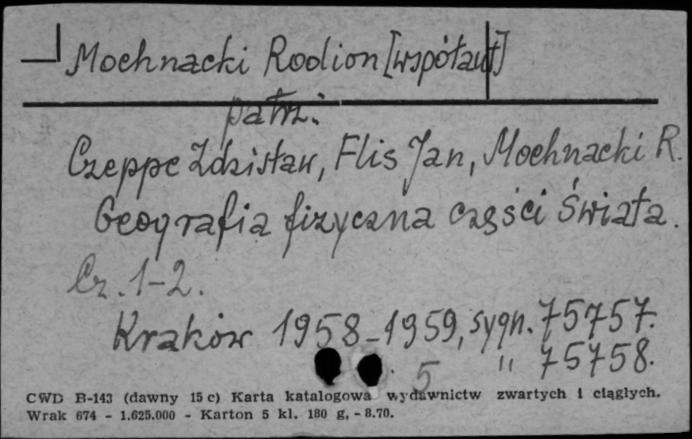 Mochnacki Rodion [współaut]
patrz:
Czeppe Zdzisław, Flis Jan, Mochnacki R.
Geografia fizyczna części świata.
Cz. 1-2.
Kraków 1958-1959, sygn. 75757.
" 75758.
5
CWD B-143 (dawny 15 c) Karta katalogowa wydawnictw zwartych i ciągłych.
Wrak 674 - 1.625.000 - Karton 5 kl. 180 g. - 8.70.